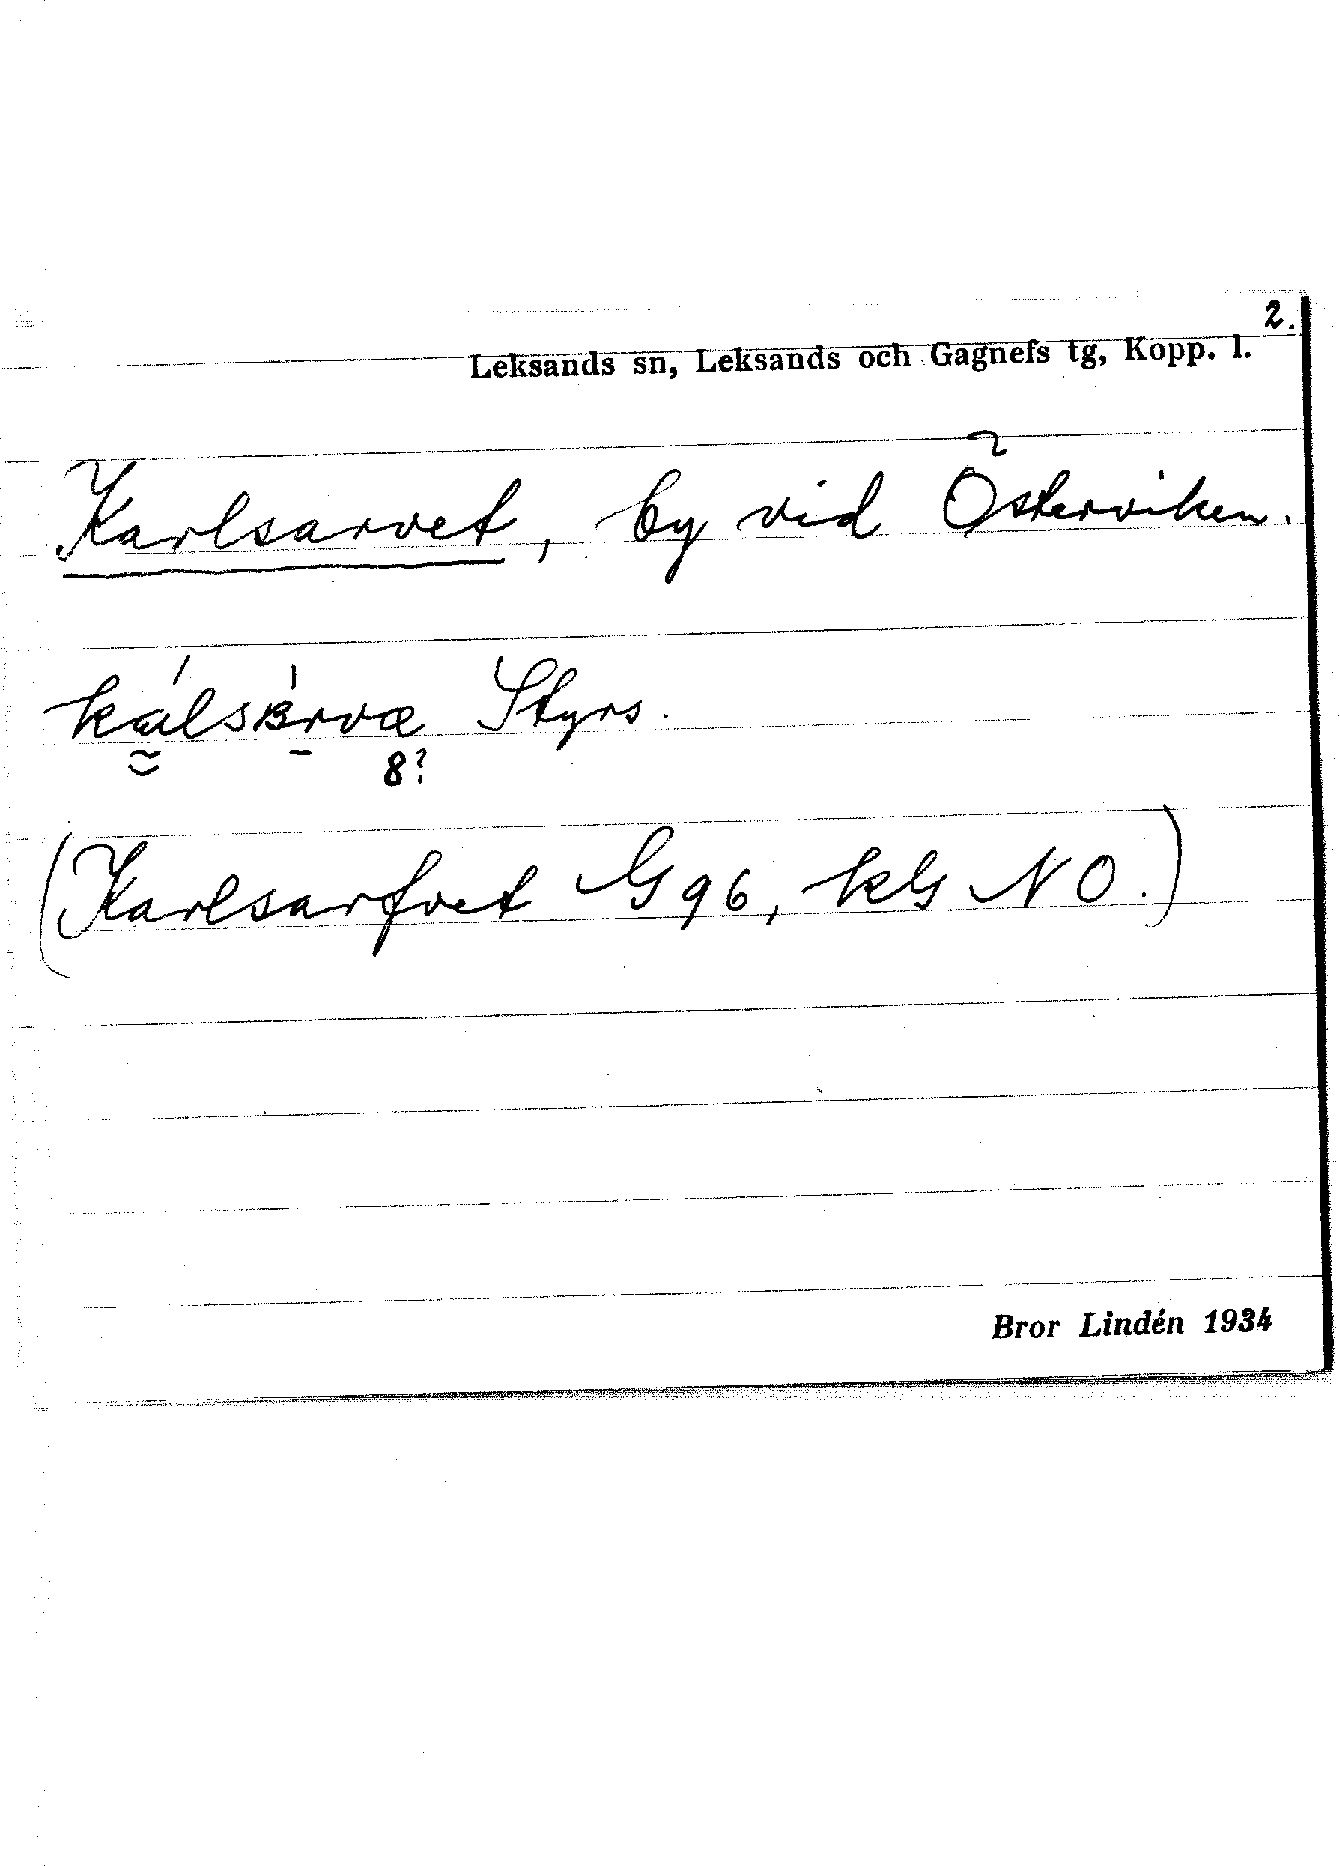 2.
Leksands sn, Leksands och Gagnefs tg, Kopp. l.
Karlsarvet, by vid Österviken.
Styrs.
8?
(Karlsarfvet G 96, kG NO.)
Bror Lindén 1934